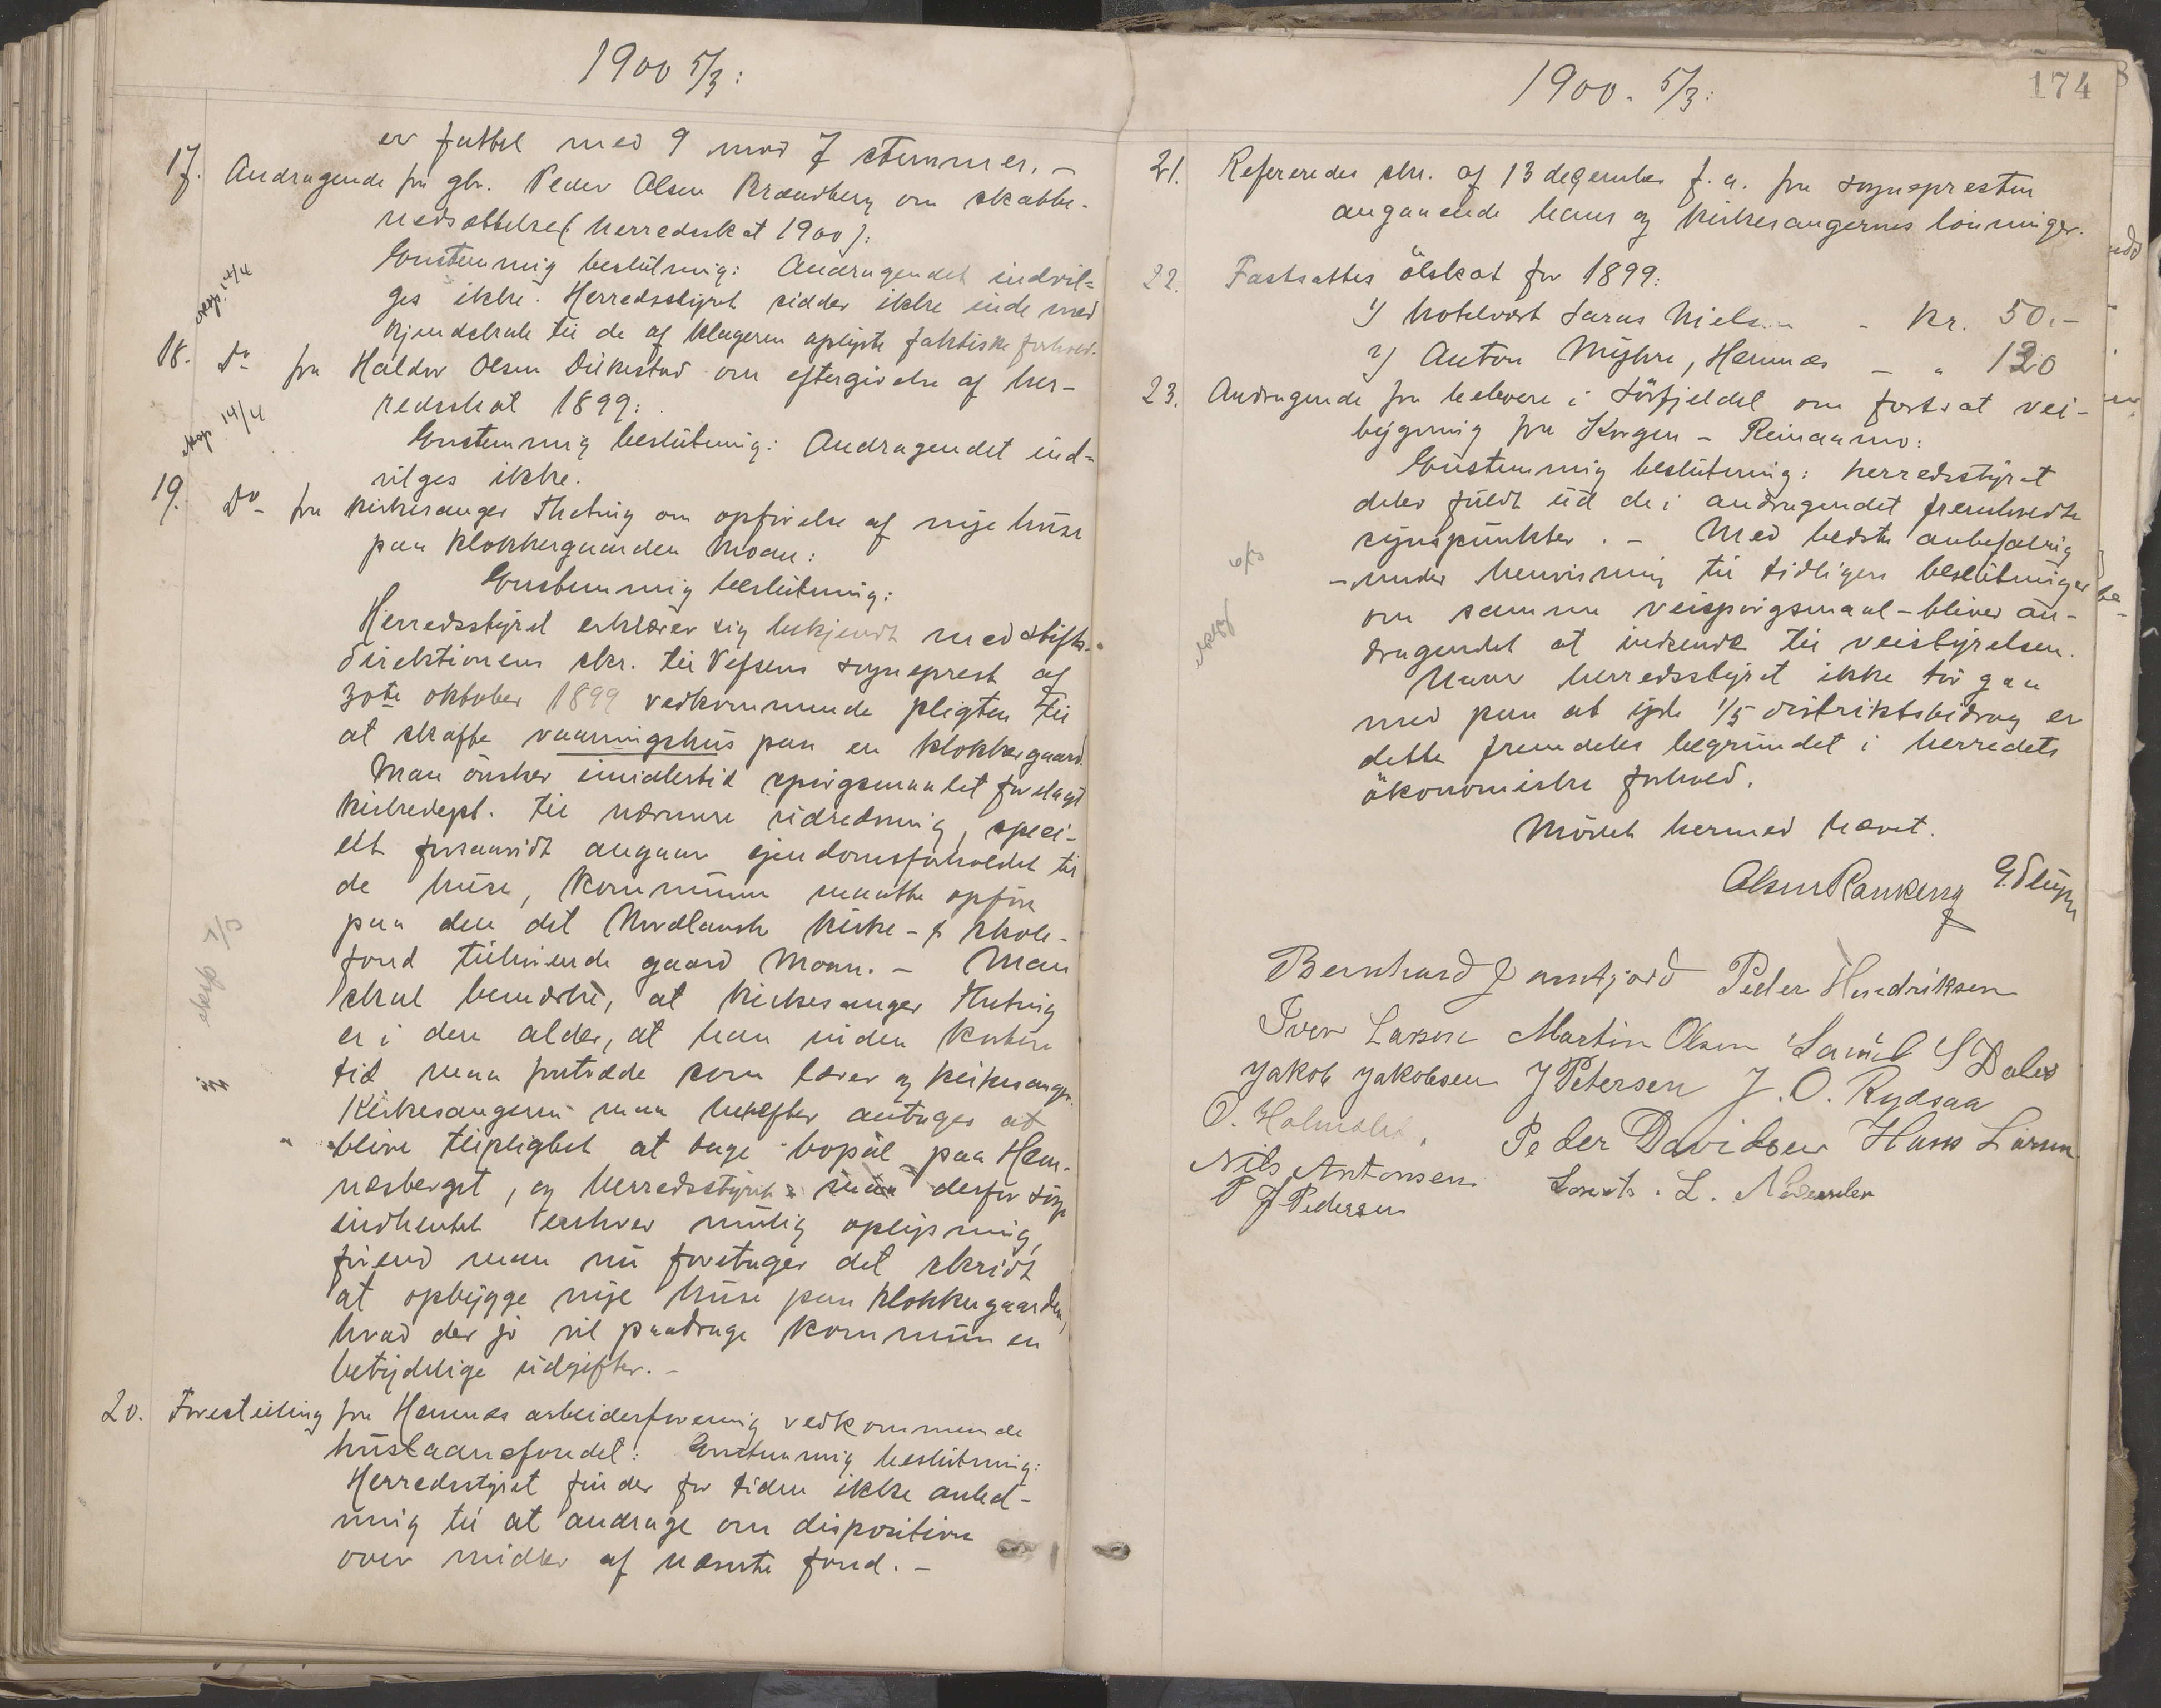 1900 5/3:
er fattet med 9 mod 7 stemmer. -
17. Andragende fra gbr. Peder Olsen Brændberg om skatte-
nedsættelse (herredsskat 1900):
Enstemmig beslutning: Andragendet indvil-
ges ikke. Herredsstyret sidder ikke inde med
kjendskab til de af klageren oplyste faktiske forhold.
exp. 14/4
18. Do fra Haldor Olsen Dilkestad om eftergivelse af her-
redsskat 1899:
Enstemmig beslutning: Andragendet ind-
vilges ikke.
exp 14/4
19. Do - fra kirkesanger Theting om opførelse af nye huse
paa klokkergaarden Moen:
Enstemmig beslutning:
Herredsstyret erklærer sig bekjendt med stifts-
direktionens skr. til Vefsens sogneprest af
30te oktober 1899 vedkommende pligten til
at skaffe vaaningshus paa en klokkergaard.
Man ønsker imidlertid spørgsmaalet forelagt
kirkedept. til nærmere udredning, speci-
elt forsaavidt angaar eiendomsforholdet til
de huse, kommunen maatte opføre
paa den det Nordlanske kirke- & skole-
fond tilhørende gaard Moen. - Man
skal bemærke, at kirkesanger Theting
er i den alder, at han inden kortere
tid maa fratræde som lærer og kirkesanger.
Kirkesangeren maa herefter antages at
blive tilpligtet at tage bopæl paa Hem-
næsberget, og herredsstyret maa derfor søge
indhentet enhver mulig oplysning,
førend man nu foretager det skridt
at opbygge nye huse paa klokkergaarden,
hvad der jo vil paadrage kommunen
betydelige udgifter. -
exp 7/5
20. Forestilling fra Hemnes arbeiderforening vedkommende
huslaansfondet: Enstemmig beslutning:
Herredsstyret finder for tiden ikke anled-
ning til at andrage om disposition
over midler af nævnte fond. -
1900. 5/3:
174
21. Refereredes skr. af 13 december f. a. fra sognepresten
angaaende hans og kirkesangernes lønninger.
22. Fastsattes ølskat for 1899:
1) hotelvært Lars Nielsen - Kr. 50.-
2) Anton Myhre, Hemnes - " 120
23. Andragende fra beboere i Sørfjeldet om fortsat vei-
bygning fra Korgen - Reinaamo:
Enstemmig beslutning: herredsstyret
deler fuldt ud de i andragendet fremholdte
synspunkter. - Med bedste anbefaling
- under henvisning til tidligere beslutninger
om samme veispørgsmaal - bliver an-
dragendet at indsende til veistyrelsen.
Naar herredsstyret ikke tør gaa
med paa at yde 1/5 distriktsbidrag er
dette fremdeles begrundet i herredets
økonomiske forhold.
Mødet hermed hævet.
Bernhard Jamtfjord Peder Hendriksen
Iver Larsen Martin Olsen Samuel S Dalos
Jakob Jakobsen J Petersen J. O. Rydsaa
O. Peder Davidsen Hans Larsen
Nils Antonsen Lorents. L.
P J Pedersen